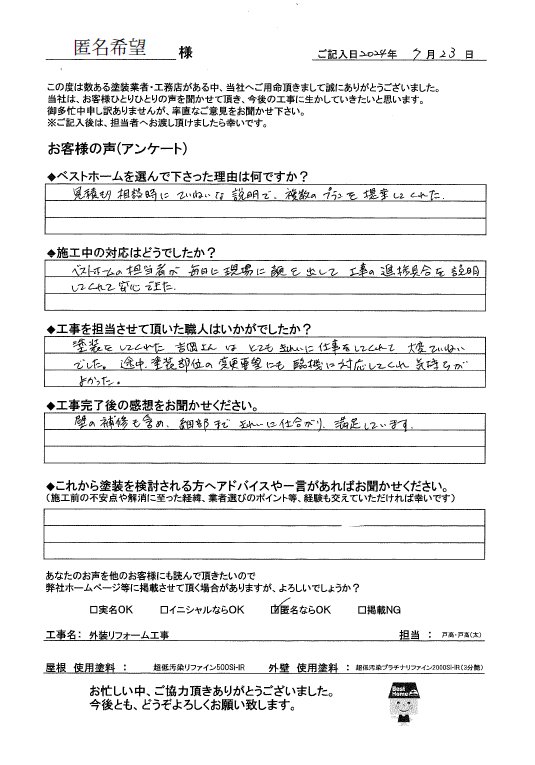 匿名希望 様
ご記入日2024年 7月23日
この度は数ある塗装業者・工務店がある中、当社へご用命頂きまして誠にありがとうございました。
当社は、お客様ひとりひとりの声を聞かせて頂き、今後の工事に生かしていきたいと思います。
御多忙中申し訳ありませんが、率直なご意見をお聞かせ下さい。
※ご記入後は、担当者へお渡し頂けましたら幸いです。
お客様の声(アンケート)
◆ベストホームを選んで下さった理由は何ですか？
見積時 相談時にていねいな説明で、複数のプランを提案してくれた.
◆施工中の対応はどうでしたか？
ベストホームの担当者が毎日に現場に顔を出して工事の進捗具合を説明
してくれて安心できた.
◆工事を担当させて頂いた職人はいかがでしたか？
塗装をしてくれた吉岡さんはとてもきれいに仕事をしてくれて大変ていねい
でした。途中、塗装部位の変更要望にも臨機に対応してくれ気持ちが
よかった。
◆工事完了後の感想をお聞かせください。
壁の補修も含め、細部まできれいに仕上がり、満足しています.
◆これから塗装を検討される方へアドバイスや一言があればお聞かせください。
（施工前の不安点や解消に至った経緯、業者選びのポイント等、経験も交えていただければ幸いです）
あなたのお声を他のお客様にも読んで頂きたいので
弊社ホームページ等に掲載させて頂く場合がありますが、よろしいでしょうか？
□実名OK □イニシャルならOK ☑匿名ならOK □掲載NG
工事名： 外装リフォーム工事 担当 ： 戸高・戸高(太)
屋根 使用塗料 ： 超低汚染リファイン500SI-IR 外壁 使用塗料 ： 超低汚染プラチナリファイン2000SI-IR(3分艶)
お忙しい中、ご協力頂きありがとうございました。
今後とも、どうぞよろしくお願い致します。
Best
Home